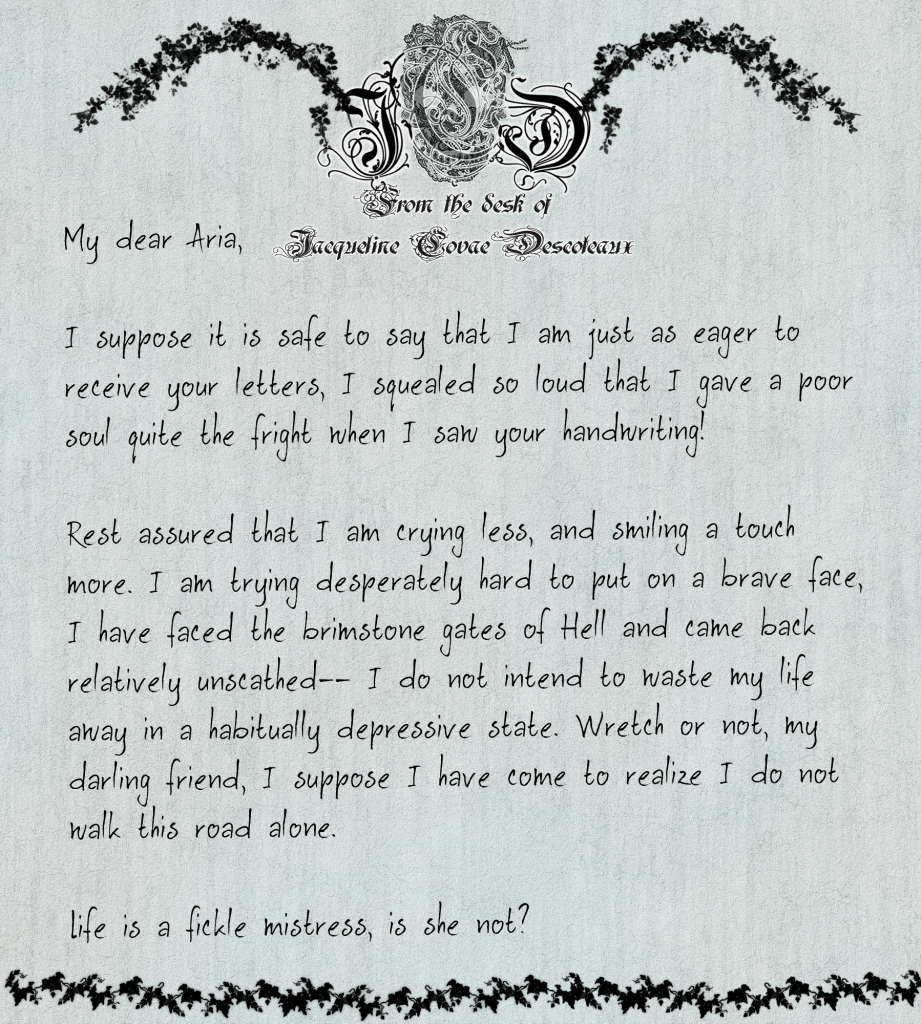 J C D
From the desk of
My dear Aria,
Jacqueline Covae Descoteaux
I suppose it is safe to say that I am just as eager to
receive your letters, I squealed so loud that I gave a poor
soul quite the fright when I saw your handwriting!
Rest assured that I am crying less, and smiling a touch
more. I am trying desperately hard to put on a brave face,
I have faced the brimstone gates of Hell and came back
relatively unscathed-- I do not intend to waste my life
away in a habitually depressive state. Wretch or not, my
darling friend, I suppose I have come to realize I do not
walk this road alone.
life is a fickle mistress, is she not?